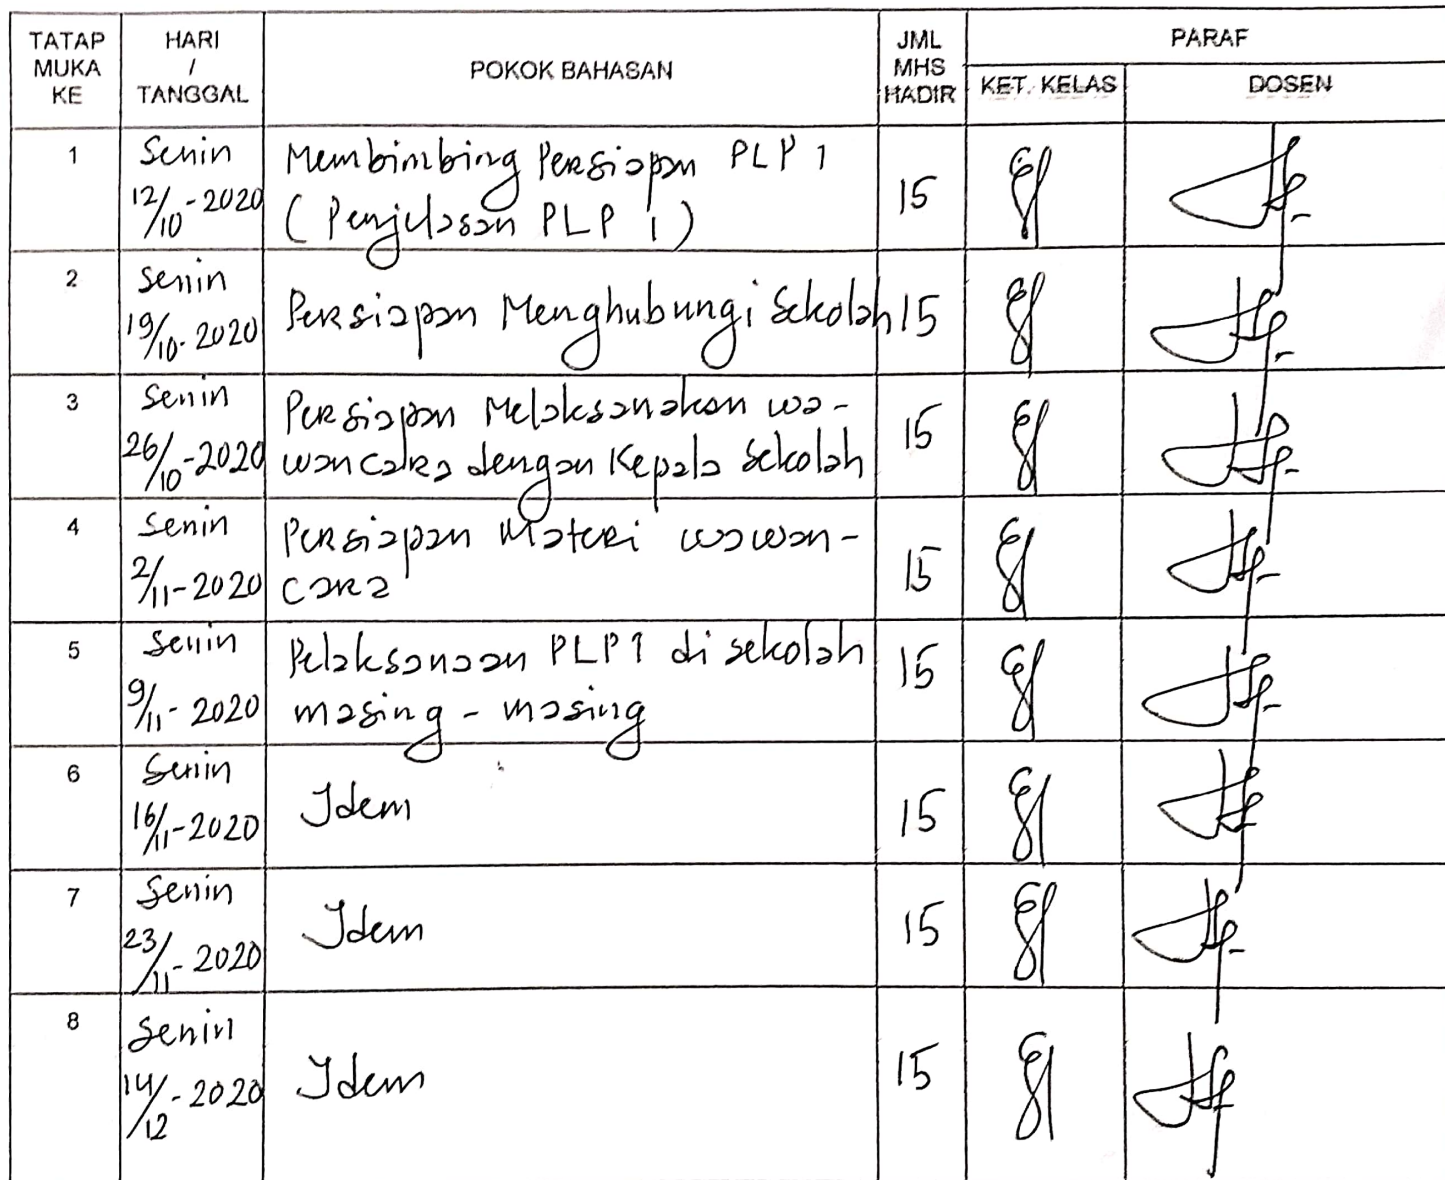 TATAP MUKA KE
HARI / TANGGAL
POKOK BAHASAN
JML MHS HADIR
PARAF
KET. KELAS
DOSEN
1
Senin
12/10-2020
Membimbing Persiapan PLP 1
(Penjelasan PLP 1)
15
2
Senin
19/10-2020
Persiapan Menghubungi Sekolah
15
3
Senin
26/10-2020
Persiapan Melaksanakan wa-
wancara dengan Kepala Sekolah
15
4
Senin
2/11-2020
Persiapan Materi wawan-
cara
15
5
Senin
9/11-2020
Pelaksanaan PLP1 di sekolah
masing-masing
15
6
Senin
16/11-2020
Idem
15
7
Senin
23/11-2020
Idem
15
8
Senin
14/12-2020
Idem
15